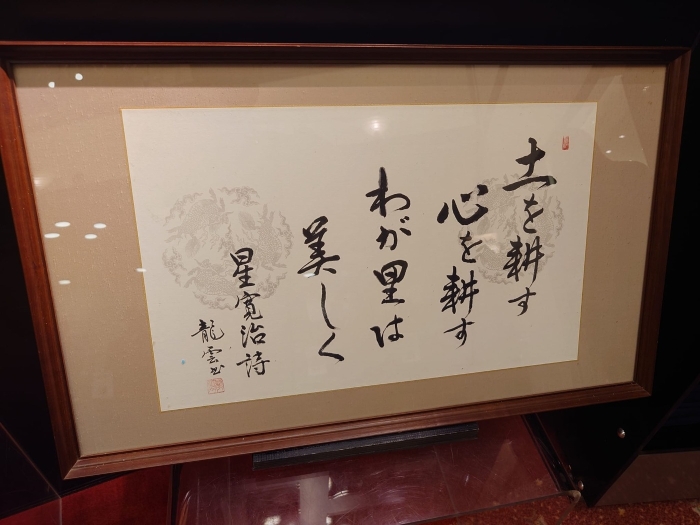 土を耕す
心を耕す
わが里は
美しく
星寛治詩
龍雲書